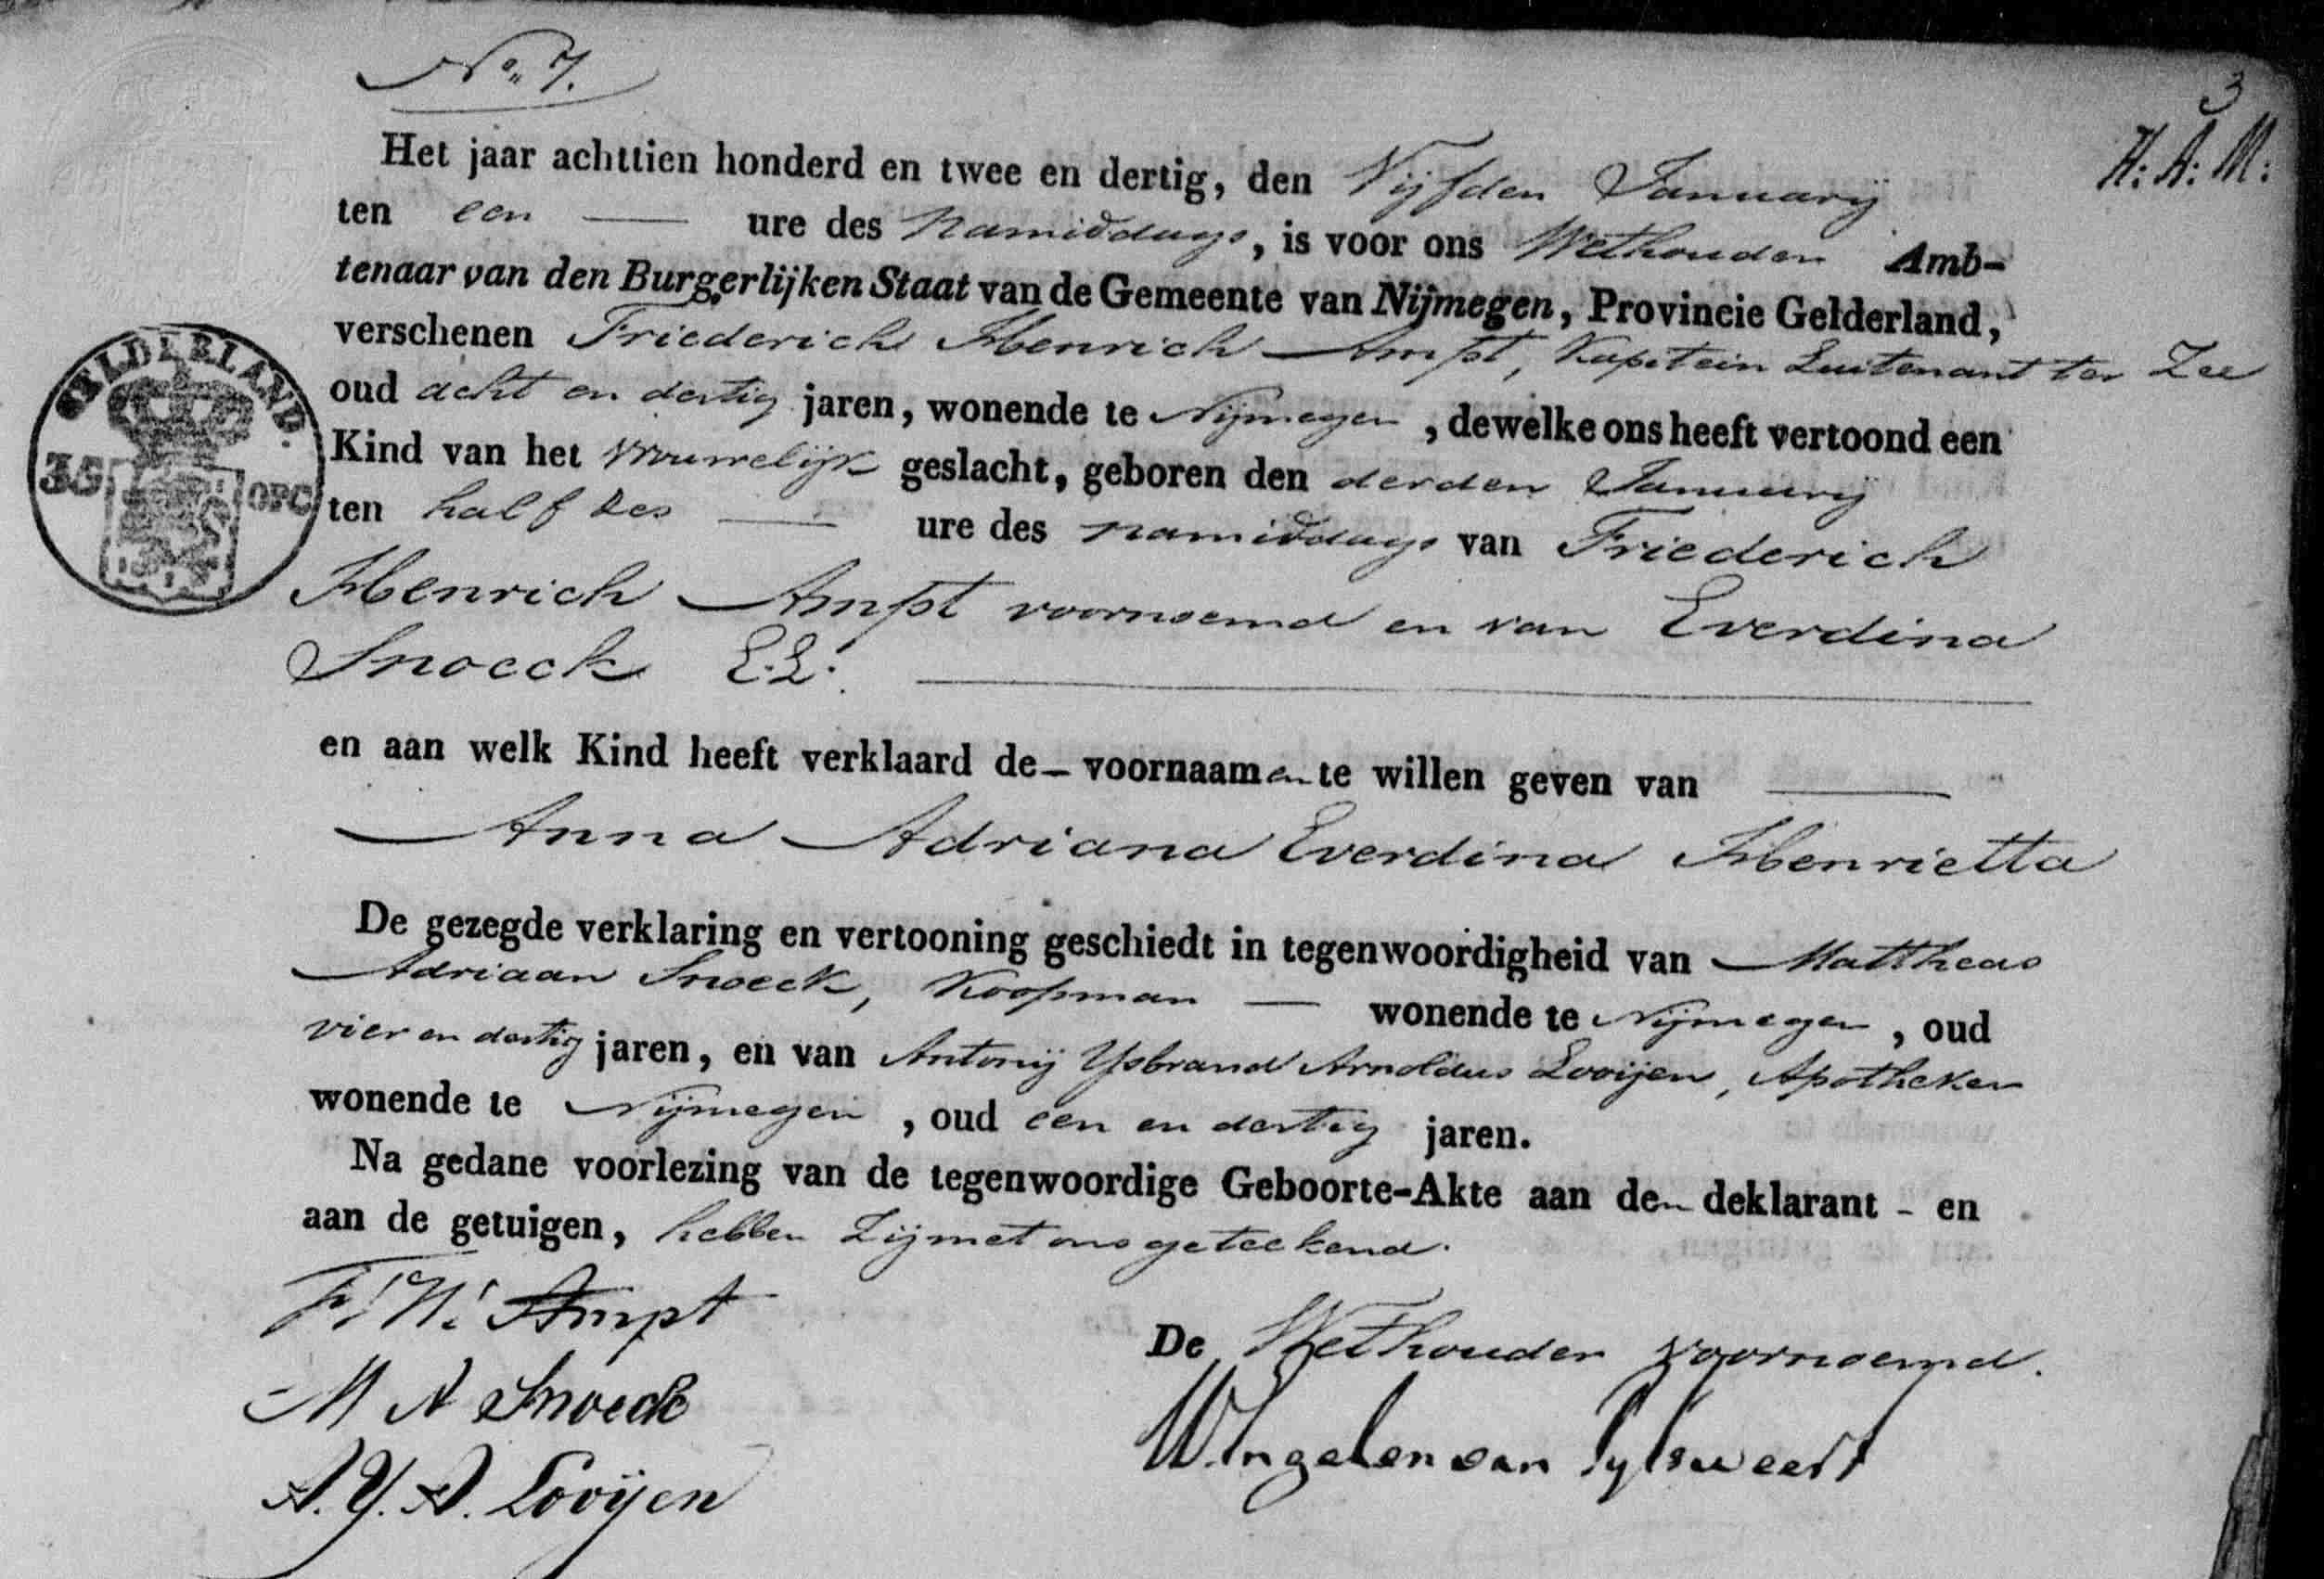 No. 7.
3
H: A: M:
Het jaar achttien honderd en twee en dertig, den Vijfden Januarij
ten een ure des Namiddags, is voor ons Wethouder Amb-
tenaar van den Burgerlijken Staat van de Gemeente van Nijmegen, Provincie Gelderland,
verschenen Friederich Henrich Ampt, Kapitein Luitenant ter Zee
oud acht en dertig jaren, wonende te Nijmegen, dewelke ons heeft vertoond een
Kind van het vrouwelijk geslacht, geboren den derden Januarij
ten half zes ure des namiddags van Friederich
Henrich Ampt voornoemd en van Everdina
Snoeck E.L.
en aan welk Kind heeft verklaard de voornaamen te willen geven van
Anna Adriana Everdina Henrietta
De gezegde verklaring en vertooning geschiedt in tegenwoordigheid van Mattheas
Adriaan Snoeck, Koopman wonende te Nijmegen, oud
vier en dertig jaren, en van Antonij Ysbrand Arnoldus Looijen, Apotheker
wonende te Nijmegen, oud een en dertig jaren.
Na gedane voorlezing van de tegenwoordige Geboorte-Akte aan den deklarant - en
aan de getuigen, hebben Zij met ons geteekend.
F: H: Ampt
De Wethouder voornoemd.
M A Snoeck
W. Ingelen van Pylsweert
A. Y. A. Looijen
GELDERLAND.
35 OPC